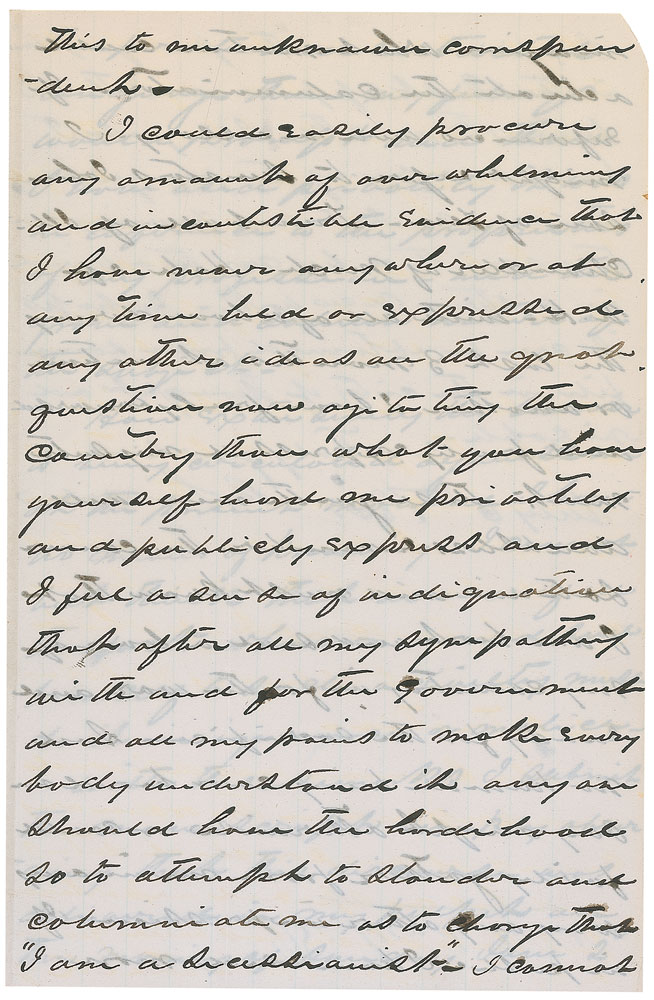 this to me unknown correspon
-dent.
I could easily procure
any amount of overwhelming
and incontestible evidence that
I have never anywhere or at
any time held or expressed
any other ideas on the great
question now agitating the
Country than what you have
yourself heard me privately
and publicly express and
I feel a sense of indignation
that after all my sympathy
with and for the Government
and all my pains to make every
body understand it any one
should have the hardihood
so to attempt to slander and
calumniate me as to charge that
"I am a secessionist". I cannot